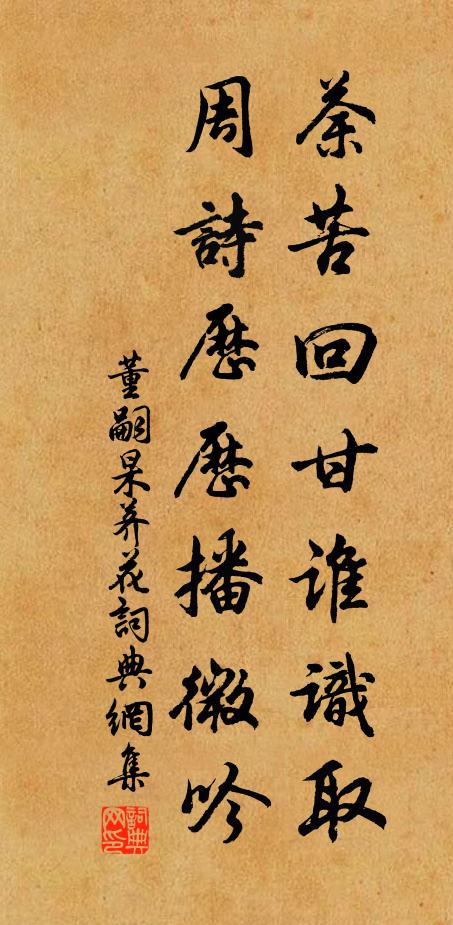 荼苦回甘誰識取
周詩歷歷播微吟
董嗣杲荠花詞典網集
詞典网印